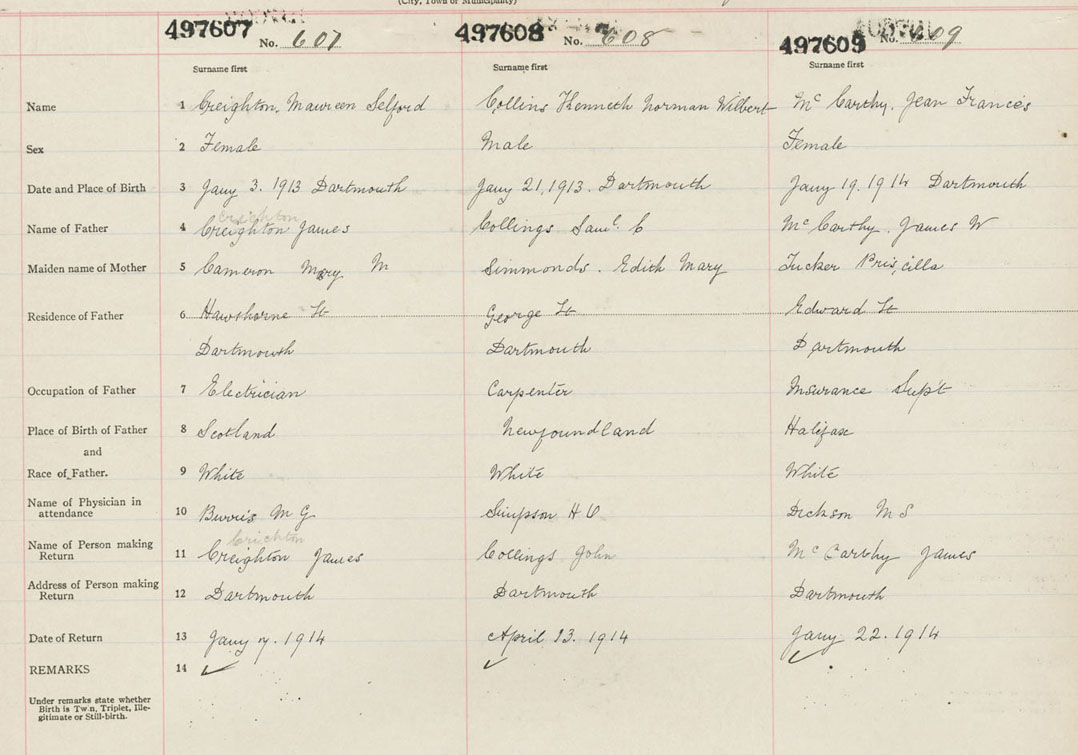 (City, Town or Municipality)
497607 No. 607 497608 No. 608 497609 No. 609
Surname first Surname first Surname first
Name 1 Creighton, Maureen Selford Collins Kenneth Norman Wilbert McCarthy, Jean Frances
Sex 2 Female Male Female
Date and Place of Birth 3 Jany 3. 1913 Dartmouth Jany 21, 1913. Dartmouth Jany 19. 1914 Dartmouth
Crichton
Name of Father 4 Creighton James Collings Saml. C McCarthy. James W
Maiden name of Mother 5 Cameron Mary M Simmonds. Edith Mary Tucker Priscilla
Residence of Father 6 Hawthorne St George St Edward St
Dartmouth Dartmouth Dartmouth
Occupation of Father 7 Electrician Carpenter Insurance Sup't
Place of Birth of Father 8 Scotland Newfoundland Halifax
and
Race of Father. 9 White White White
Name of Physician in
attendance 10 Burris M G Simpson H U Dickson M S
Crichton
Name of Person making
Return 11 Creighton James Collings John McCarthy James
Address of Person making
Return 12 Dartmouth Dartmouth Dartmouth
Date of Return 13 Jany 7. 1914 April 13. 1914 Jany 22. 1914
REMARKS 14 ✓ ✓ ✓
Under remarks state whether
Birth is Twin, Triplet, Ille-
gitimate or Still-birth.